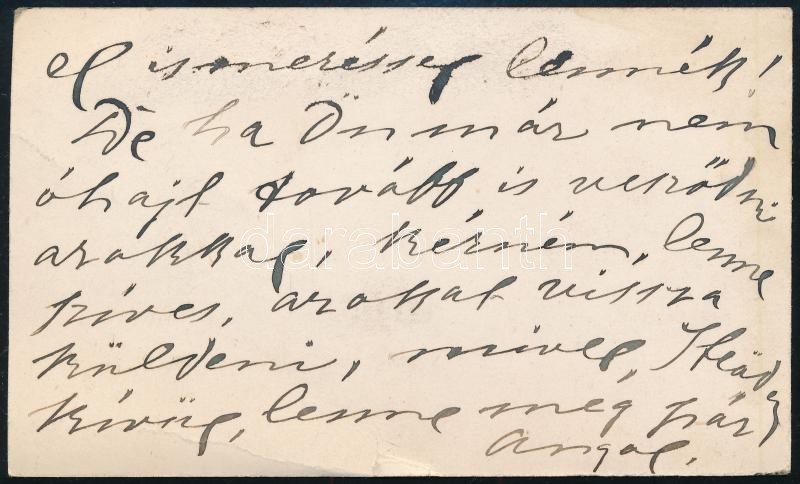 el ismerésseg lennék!
De ha Ön már nem
óhajt tovább is vesződni
azokkal, kérném, lenne
szives, azokat vissza
küldeni, mivel, Stead
kivül, lenne még pár
angol.
darabanth